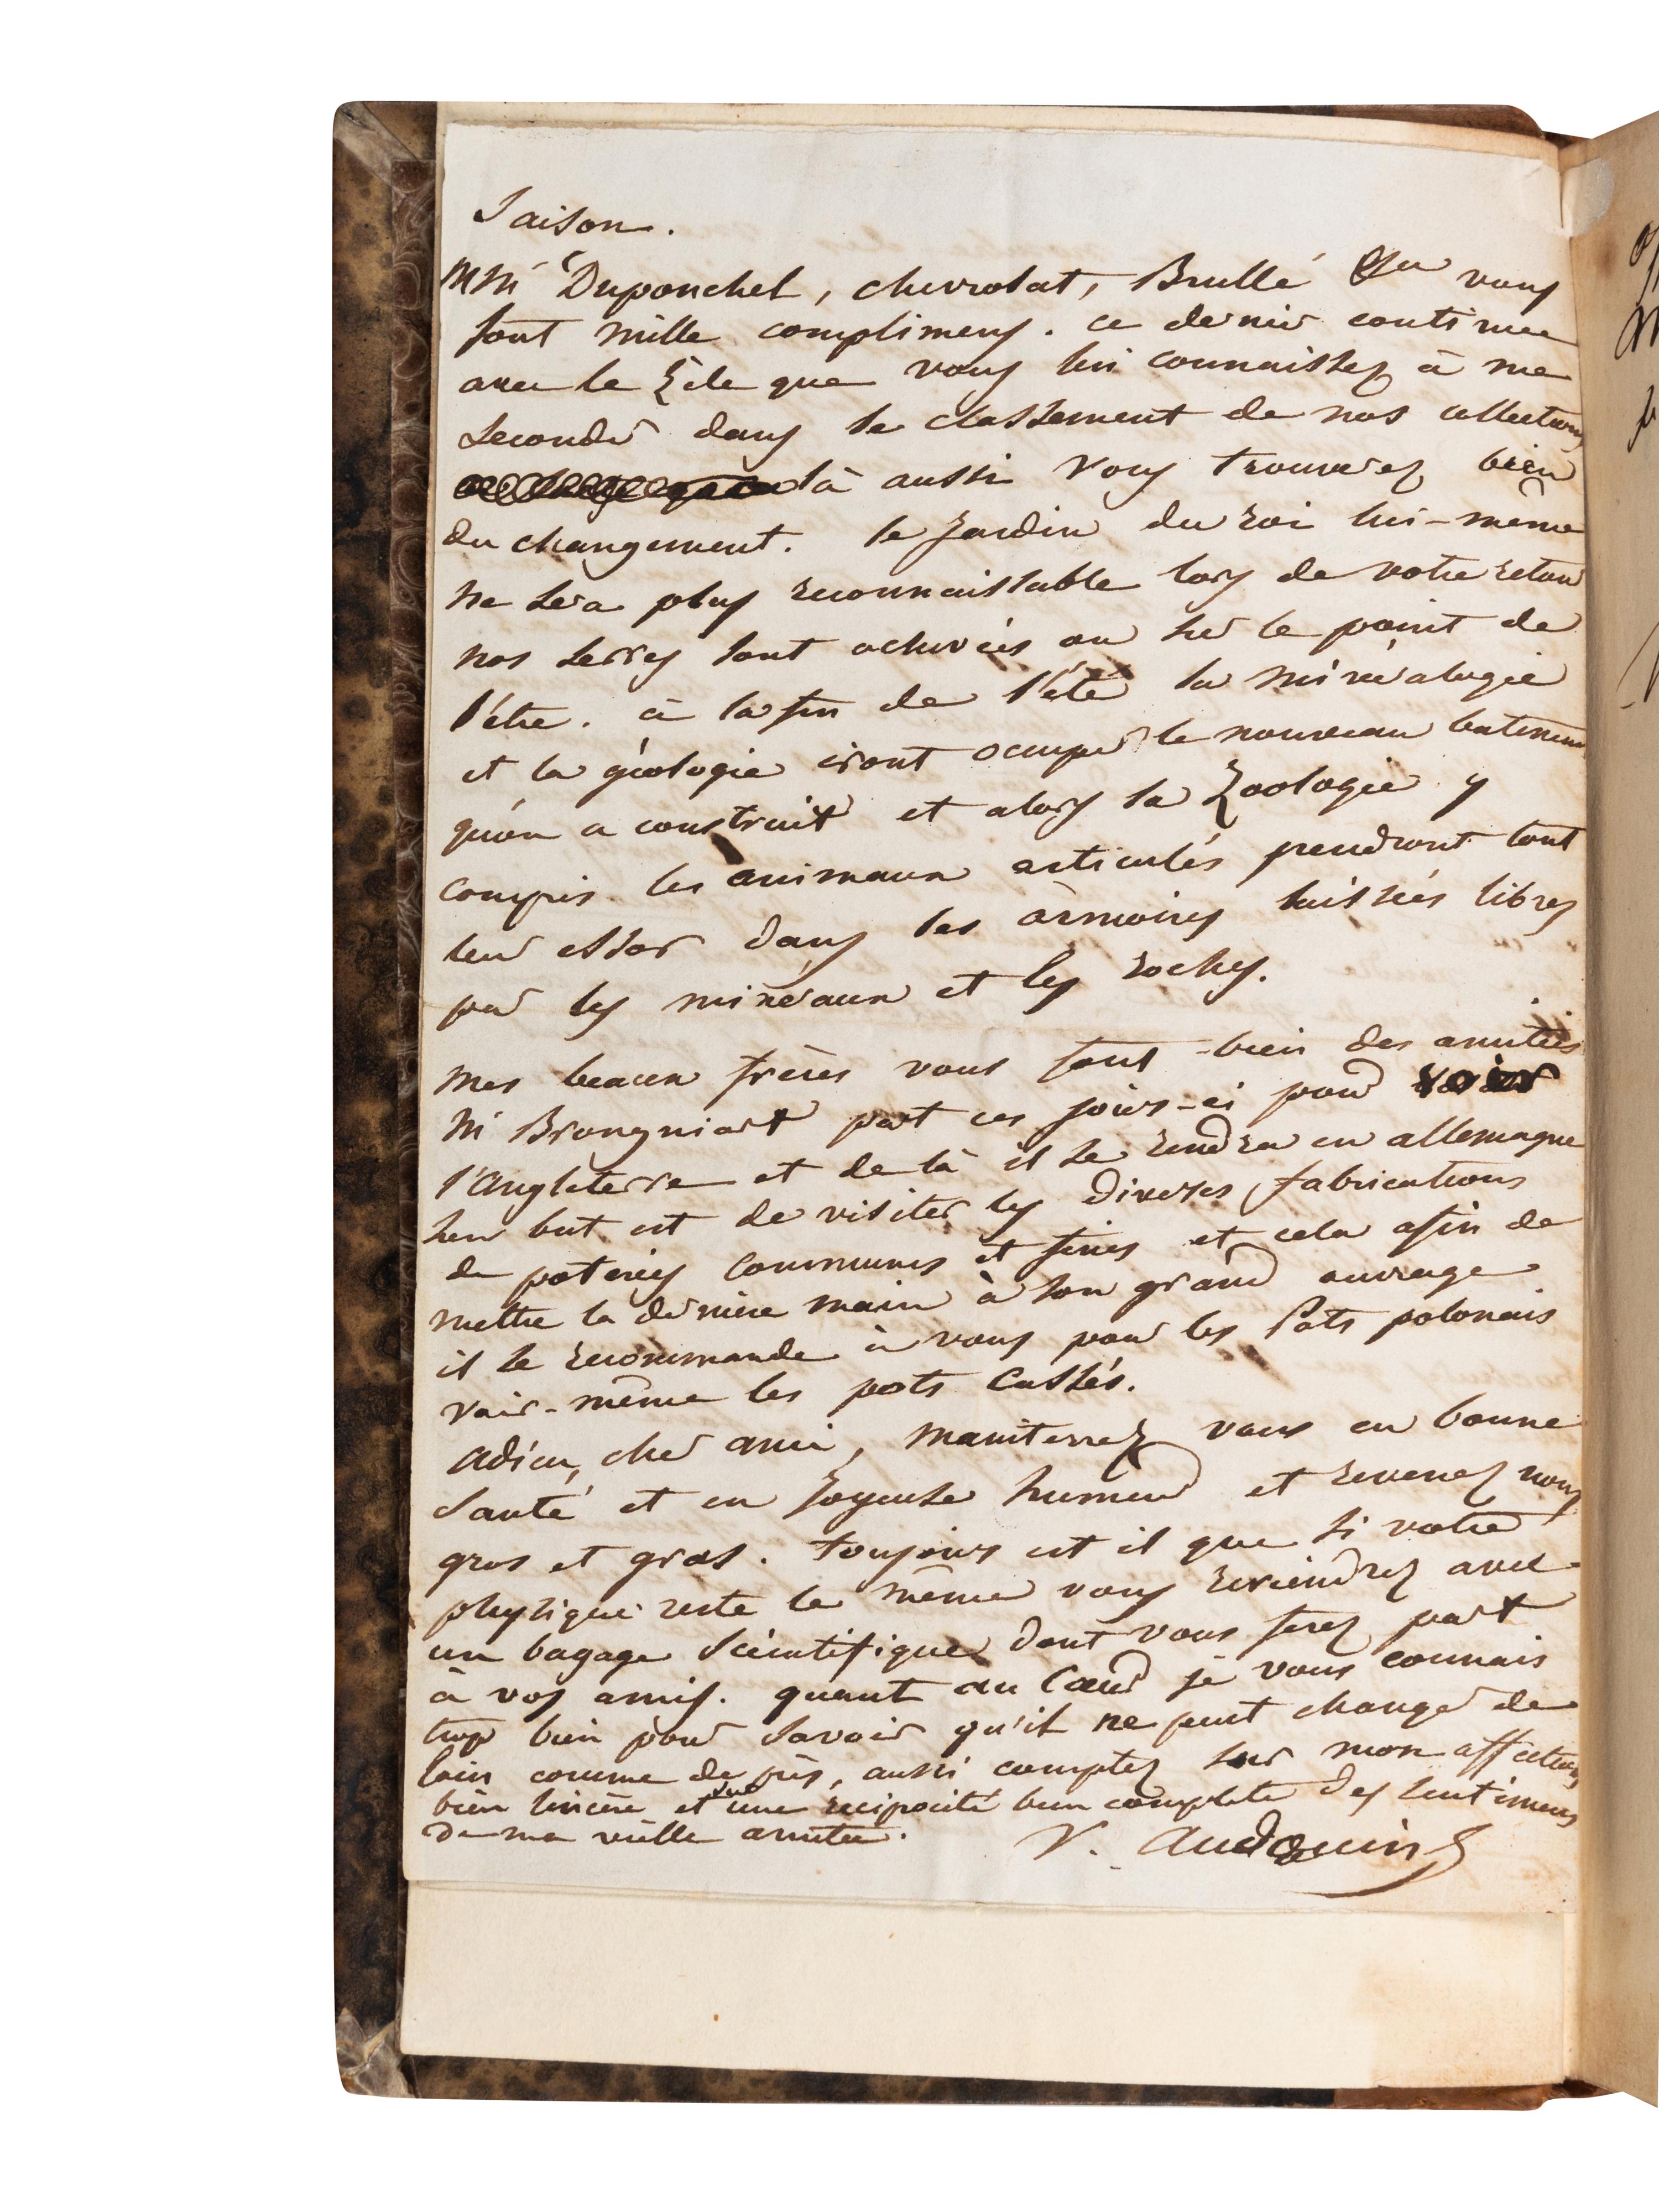 Saison.
MM Duponchel, chevrolat, Brullé vous
font mille complimens. ce dernier continue
avec le zèle que vous lui connaissez à me
seconder dans le classement de nos collections
là aussi vous trouverez bien
du changement. le jardin du roi lui-même
ne sera plus reconnaissable lors de votre retour
nos serres sont achevées ou sur le point de
l'être. à la fin de l'été la minéralogie
et la géologie iront occuper le nouveau batiment
qu'on a construit et alors la Zoologie y
compris les animaux articulés prendront tout
leur essor dans les armoires laissées libres
par les minéraux et les roches.
mes beaux frères vous font bien des amitiés
M Brongniart part ces jours-ci pour
l'angleterre et de là il se rendra en allemagne
son but est de visiter les diverses fabrications
de poteries communes et fines et cela afin de
mettre la dernière main à son grand ouvrage
il se recommande à vous pour les Pots polonais
voir-même les pots cassés.
adieu, cher ami, maintenez vous en bonne
santé et en joyeuse humeur et revenez nous
gros et gras. toujours est il que si votre
physique reste le même vous reviendrez avec
un bagage scientifique dont vous ferez part
à vos amis. quant au Cœur je vous connais
trop bien pour savoir qu'il ne peut changer de
loin comme de près, aussi comptez sur mon affection
bien sincère et une réciprocité bien complète des sentimens
de ma vieille amitié.
V. Audouin